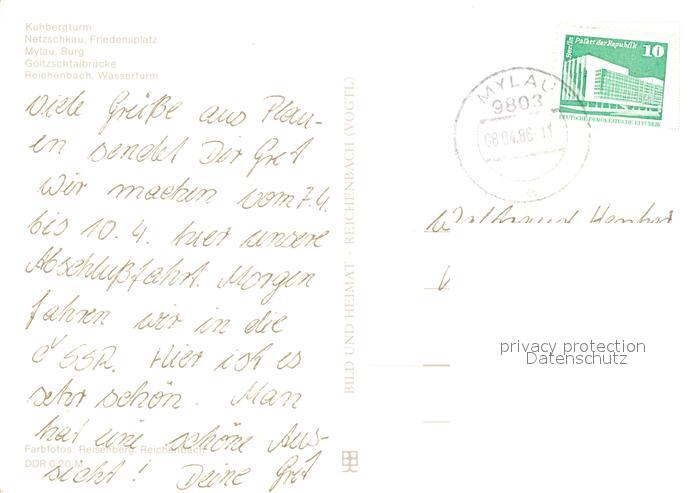 Kuhbergturm
Netzschkau, Friedensplatz
Mylau, Burg
Göltzschtalbrücke
Reichenbach, Wasserturm
Viele Grüße aus Plau-
en sendet Dir Gret
Wir machen vom 7.4.
bis 10.4. hier unsere
Abschlußfahrt. Morgen
fahren wir in die
ČSSR. Hier ist es
sehr schön. Man
hat eine schöne Aus-
sicht! Deine Gret
Farbfotos: Reisenberg, Reichenbach
DDR 0,20 M
BILD UND HEIMAT · REICHENBACH (VOGTL)
MYLAU
9803
08.04.86-11
Berlin Palast der Republik
10
DEUTSCHE DEMOKRATISCHE REPUBLIK
privacy protection
Datenschutz